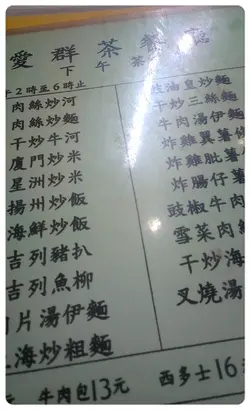 愛群茶餐廳
下午茶
午2時至6時止
肉絲炒河
肉絲炒麵
干炒牛河
廈門炒米
星洲炒米
揚州炒飯
海鮮炒飯
吉列豬扒
吉列魚柳
肉片湯伊麵
上海炒粗麵
豉油皇炒麵
干炒三絲麵
牛肉湯伊麵
炸雞翼薯
炸雞髀薯
炸腸仔薯
豉椒牛肉
雪菜肉絲
干炒海
叉燒湯
牛肉包13元
西多士16